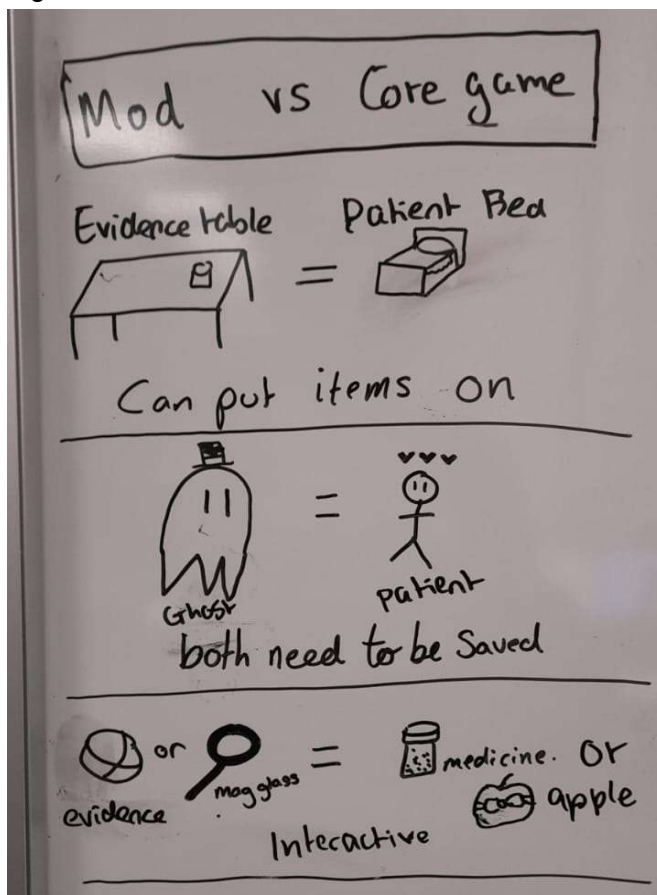 Mod vs Core game
Evidence table = Patient Bed
Can put items on
=
Ghost
patient
both need to be Saved
or = medicine. Or
evidence mag glass apple
Interactive